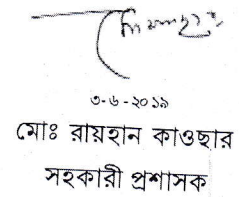 ৩-৬-২০১৯
মোঃ রায়হান কাওছার
সহকারী প্রশাসক